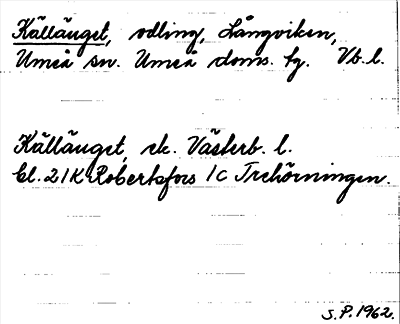 Källänget, odling, Långviken,
Umeå sn. Umeå doms. tg. Vb. l.
Källänget, ek. Västerb. l.
bl. 21K Robertsfors 1c Trehörningen.
S.P. 1962.